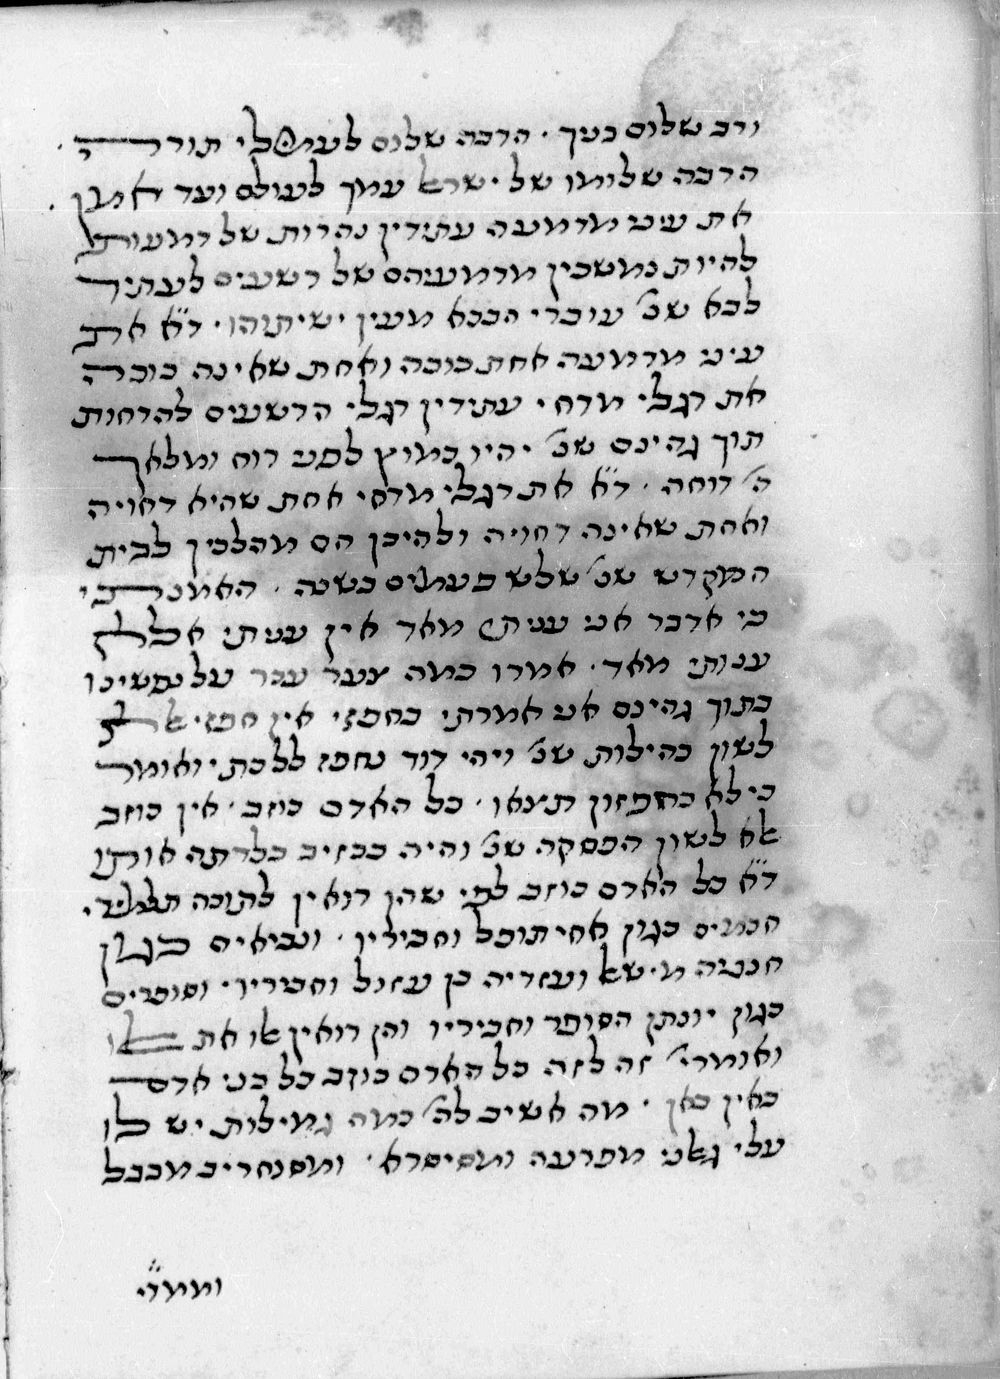 ורב שלום בניך · הרבה שלום לעמלי תורה ·
הרבה שלומו של ישראל עמך לעולם ועד אמן ·
את עיני מדמעה עתידין נהרות של דמעות
להיות נמשכין מדמעיהם של רשעים לעתיד
לבא שנ' עוברי הבכא מעין ישיתוהו · ד"א את
עיני מדמעה אחת בוכה ואחת שאינה בוכה
את רגלי מדחי עתידין רגלי הרשעים להדחות
תוך גהינם שנ' יהיו כמוץ לפני רוח ומלאך
ה' דוחה · ד"א את רגלי מדחי אחת שהיא דחויה
ואחת שאינה דחויה ולהיכן הם מהלכין לבית
המקדש שנ' שלש פעמים בשנה · האמנתי
כי אדבר אני עניתי מאד אין עניתי אלא
ענותי מאד · אמרו כמה צער עבר על נפשינו
בתוך גהינם אני אמרתי בחפזי אין חפזי אלא
לשון בהילות שנ' ויהי דוד נחפז ללכת · ואומר
כי לא בחפזון תצאו · כל האדם כוזב · אין כוזב
אלא לשון הפסקה שנ' והיה ככזיב בלדתה אותו
ד"א כל האדם כוזב לפי שהן רואין לתוכה תלמידי
חכמים כגון אחיתופל וחבירין · ונביאים כגון
חנניה מישאל ועזריה בן עזול וחביריו · וסופרים
כגון יונתן הסופר וחביריו והן רואין אלו את אלו
ואומרי' זה לזה כל האדם כוזב כל בני אדם
כאין כאן · מה אשיב לה' כמה גמילות יש לו
עלי גאלני מפרעה ומסיסרא · ומסנחריב מבבל
וממדי"